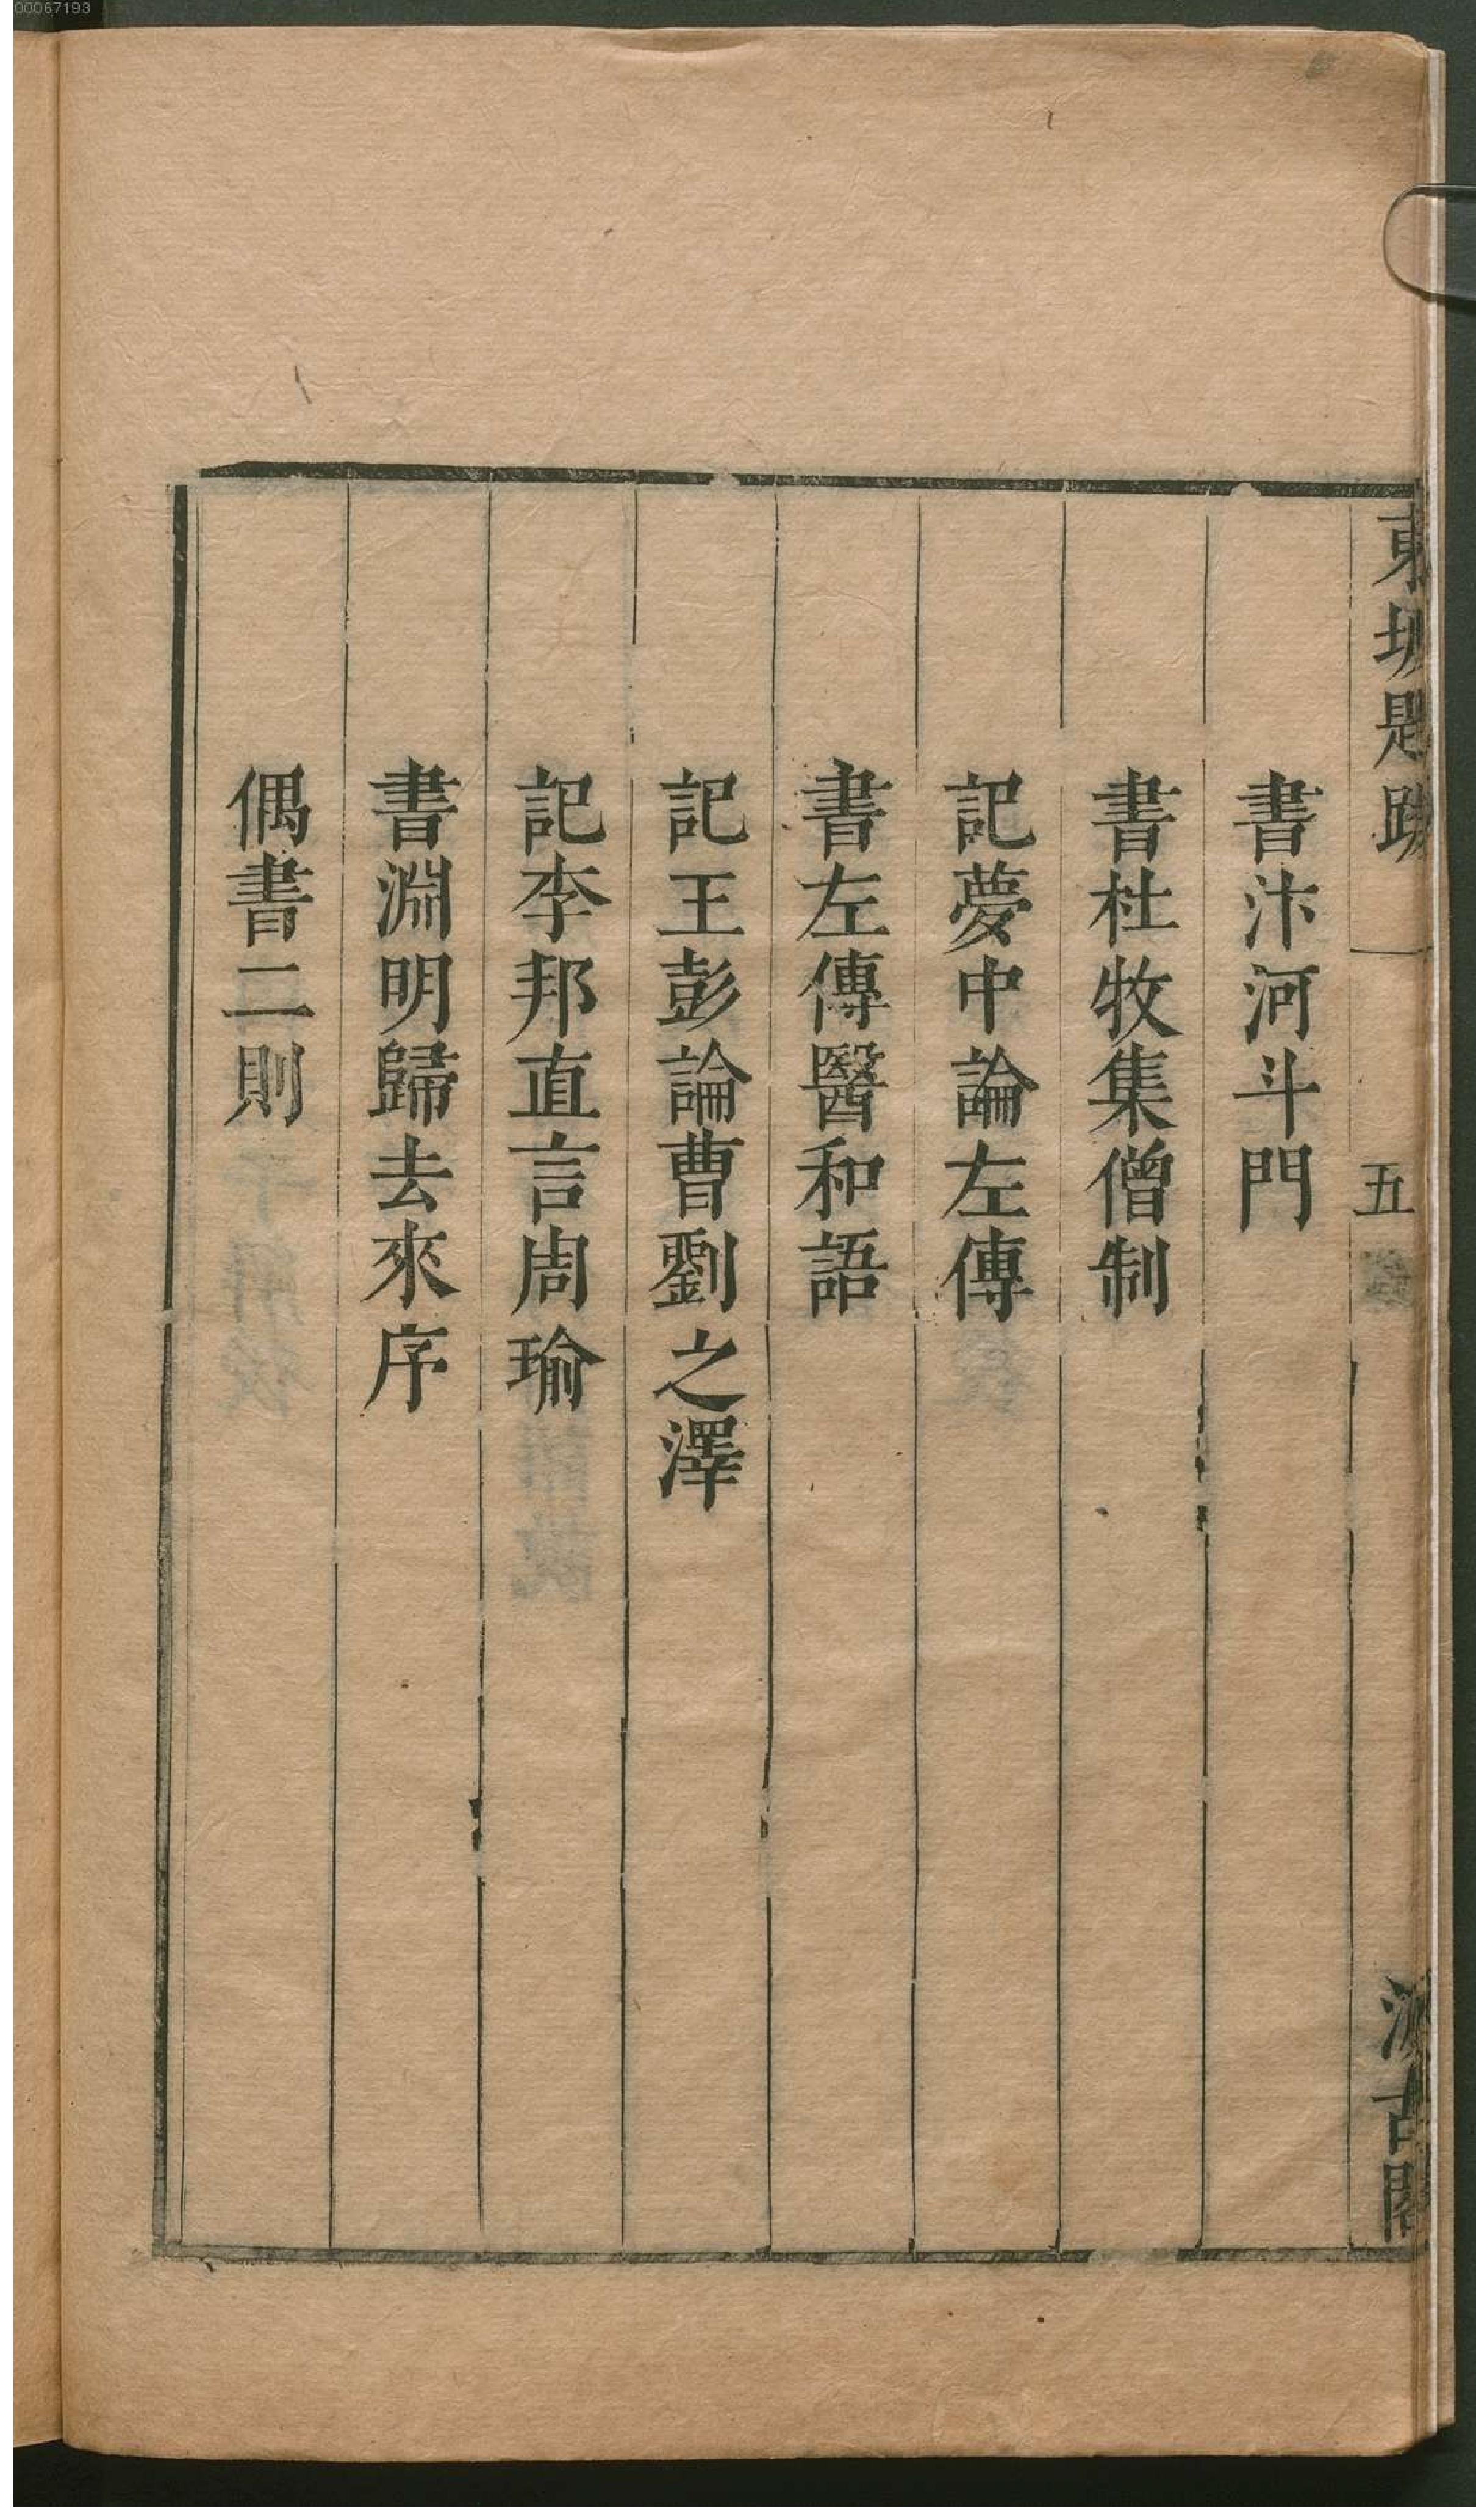 00067193
東坡題跋
五
汲古閣
書汴河斗門
書杜牧集僧制
記夢中論左傳
書左傳醫和語
記王彭論曹劉之澤
記李邦直言周瑜
書淵明歸去來序
偶書二則